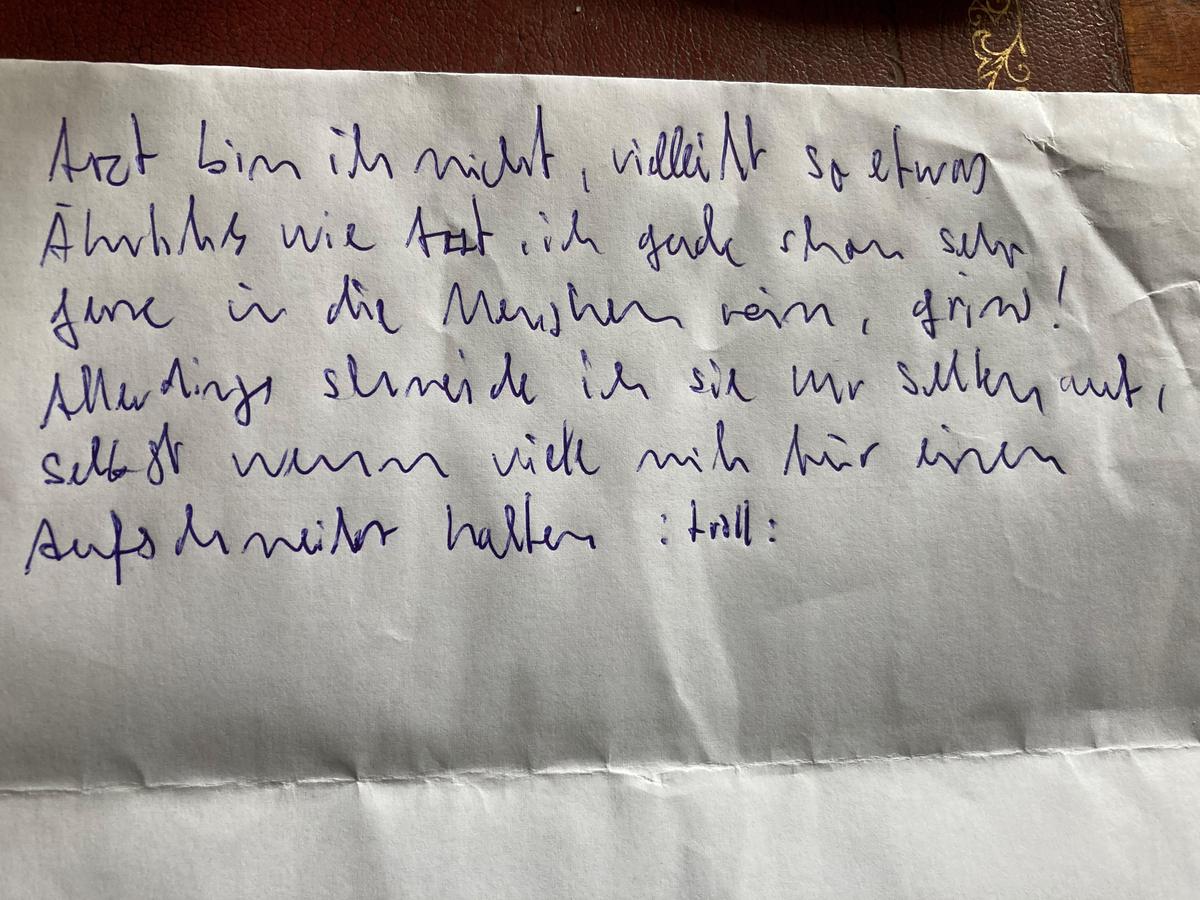 Arzt bin ich nicht, vielleicht so etwas
Ähnliches wie Arzt, ich gucke schon sehr
gerne in die Menschen rein, grins!
Allerdings schneide ich sie nur selten auf,
selbst wenn viele mich für einen
Aufschneider halten :troll: